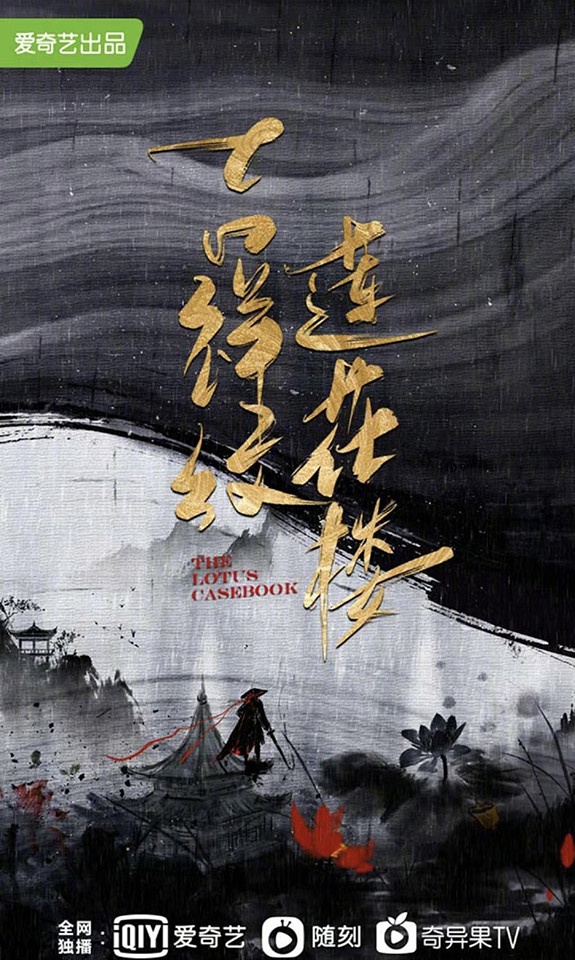 爱奇艺出品
吉祥纹
莲花楼
THE
LOTUS
CASEBOOK
全网
独播：
iQIYI 爱奇艺
随刻
奇异果TV